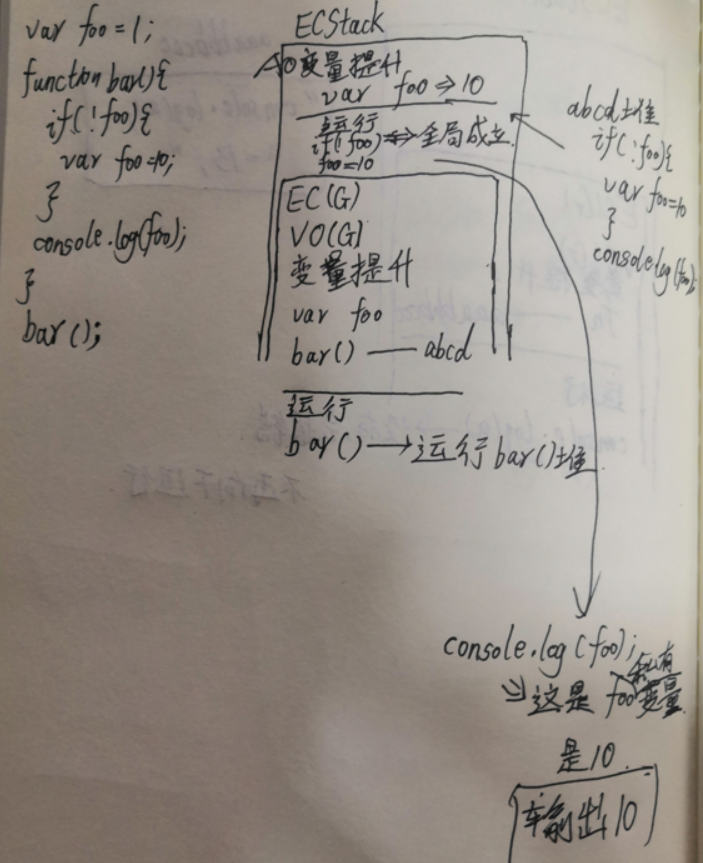 var foo = 1;
function bar(){
if(!foo){
var foo=10;
}
console.log(foo);
}
bar();
ECStack
AO变量提升
var foo => 10
运行
if(!foo) <=> 全局成立.
foo=10
EC(G)
VO(G)
变量提升
var foo
bar() —— abcd
运行
bar() → 运行bar()堆
abcd堆
if(!foo){
var foo=10
}
console.log(foo);
console.log(foo);
这是 foo 私有变量
是10
输出10